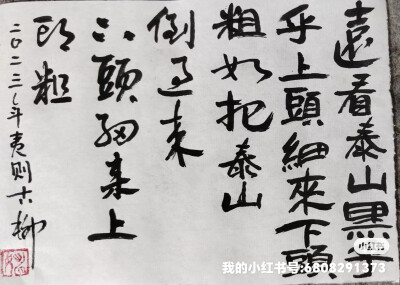 遠看泰山黑乎
乎上頭細來下頭
粗如把泰山
倒过来
下頭細来上
头粗
二〇二三年夷则古柳
小红书
我的小红书号:6808291373